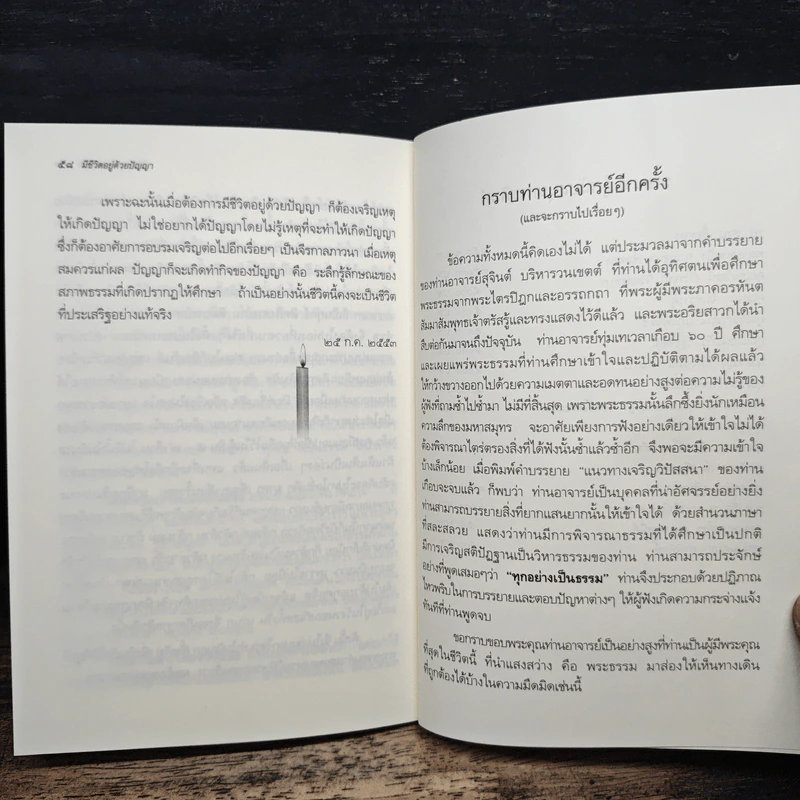 ๕๘ มีชีวิตอยู่ด้วยปัญญา
เพราะฉะนั้นเมื่อต้องการมีชีวิตอยู่ด้วยปัญญา ก็ต้องเจริญเหตุ
ให้เกิดปัญญา ไม่ใช่อยากได้ปัญญาโดยไม่รู้เหตุที่จะทำให้เกิดปัญญา
ซึ่งก็ต้องอาศัยการอบรมเจริญต่อไปอีกเรื่อยๆ เป็นจีรกาลภาวนา เมื่อเหตุ
สมควรแก่ผล ปัญญาก็จะเกิดทำกิจของปัญญา คือ ระลึกรู้ลักษณะของ
สภาพธรรมที่เกิดปรากฏให้ศึกษา ถ้าเป็นอย่างนั้นชีวิตนี้คงจะเป็นชีวิต
ที่ประเสริฐอย่างแท้จริง
๒๕ ก.ค. ๒๕๕๓
กราบท่านอาจารย์อีกครั้ง
(และจะกราบไปเรื่อยๆ)
ข้อความทั้งหมดนี้คิดเองไม่ได้ แต่ประมวลมาจากคำบรรยาย
ของท่านอาจารย์สุจินต์ บริหารวนเขตต์ ที่ท่านได้อุทิศตนเพื่อศึกษา
พระธรรมจากพระไตรปิฎกและอรรถกถา ที่พระผู้มีพระภาคอรหันต
สัมมาสัมพุทธเจ้าตรัสรู้และทรงแสดงไว้ดีแล้ว และพระอริยสาวกได้นำ
สืบต่อกันมาจนถึงปัจจุบัน ท่านอาจารย์ทุ่มเทเวลาเกือบ ๖๐ ปี ศึกษา
และเผยแพร่พระธรรมที่ท่านศึกษาเข้าใจและปฏิบัติตามได้ผลแล้ว
ให้กว้างขวางออกไปด้วยความเมตตาและอดทนอย่างสูงต่อความไม่รู้ของ
ผู้ฟังที่ถามซ้ำไปซ้ำมา ไม่มีที่สิ้นสุด เพราะพระธรรมนั้นลึกซึ้งยิ่งนักเหมือน
ความลึกของมหาสมุทร จะอาศัยเพียงการฟังอย่างเดียวให้เข้าใจไม่ได้
ต้องพิจารณาไตร่ตรองสิ่งที่ได้ฟังนั้นซ้ำแล้วซ้ำอีก จึงพอจะมีความเข้าใจ
บ้างเล็กน้อย เมื่อพิมพ์คำบรรยาย “แนวทางเจริญวิปัสสนา” ของท่าน
เกือบจะจบแล้ว ก็พบว่า ท่านอาจารย์เป็นบุคคลที่น่าอัศจรรย์อย่างยิ่ง
ท่านสามารถบรรยายสิ่งที่ยากแสนยากนั้นให้เข้าใจได้ ด้วยสำนวนภาษา
ที่สละสลวย แสดงว่าท่านมีการพิจารณาธรรมที่ได้ศึกษาเป็นปกติ
มีการเจริญสติปัฏฐานเป็นวิหารธรรมของท่าน ท่านสามารถประจักษ์
อย่างที่พูดเสมอๆว่า “ทุกอย่างเป็นธรรม” ท่านจึงประกอบด้วยปฏิภาณ
ไหวพริบในการบรรยายและตอบปัญหาต่างๆ ให้ผู้ฟังเกิดความกระจ่างแจ้ง
ทันทีที่ท่านพูดจบ
ขอกราบขอบพระคุณท่านอาจารย์เป็นอย่างสูงที่ท่านเป็นผู้มีพระคุณ
ที่สุดในชีวิตนี้ ที่นำแสงสว่าง คือ พระธรรม มาส่องให้เห็นทางเดิน
ที่ถูกต้องได้บ้างในความมืดมิดเช่นนี้